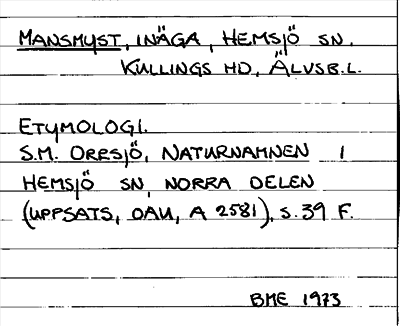 MANSMYST, INÄGA, HEMSJÖ SN.
KULLINGS HD, ÄLVSB.L.
ETYMOLOGI.
S.M. ORRSJÖ, NATURNAMNEN I
HEMSJÖ SN, NORRA DELEN
(UPPSATS, DAU, A 2581), S. 39 F.
BME 1973